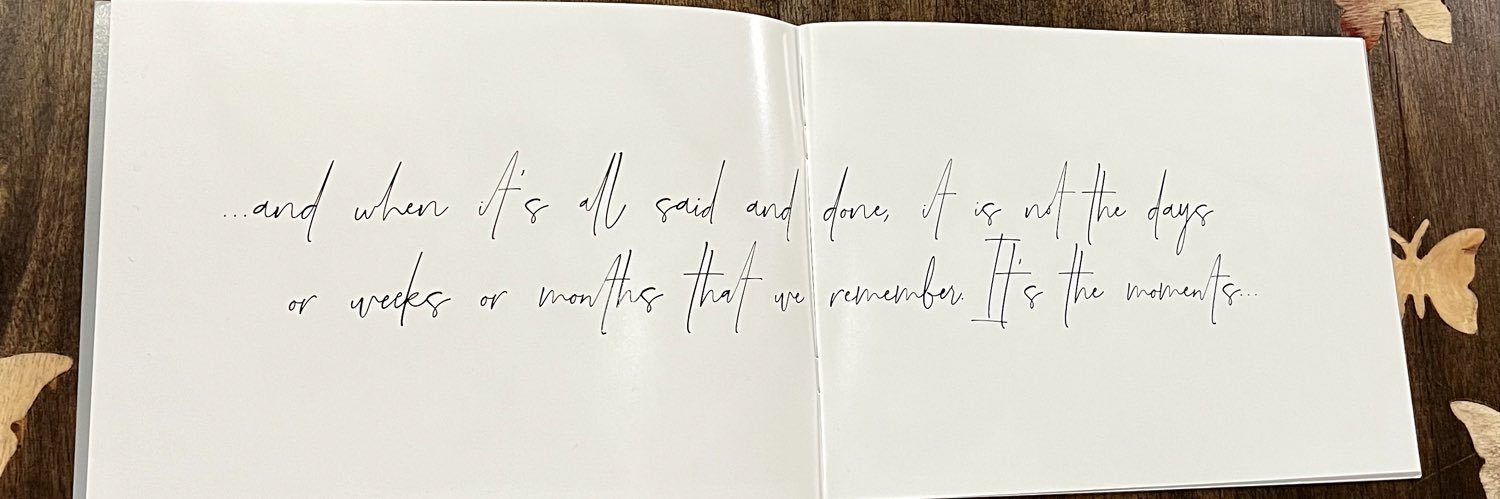 ...and when it's all said and done, it is not the days
or weeks or months that we remember. It's the moments...